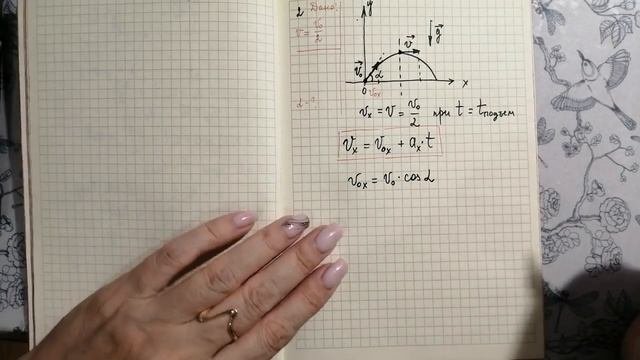 2 Дано:
v = v₀/2
α - ?
y
v⃗
g⃗
v⃗₀
α
0 v₀ₓ
x
vₓ = v = v₀/2 при t = tподъем
vₓ = v₀ₓ + aₓ · t
v₀ₓ = v₀ · cos α